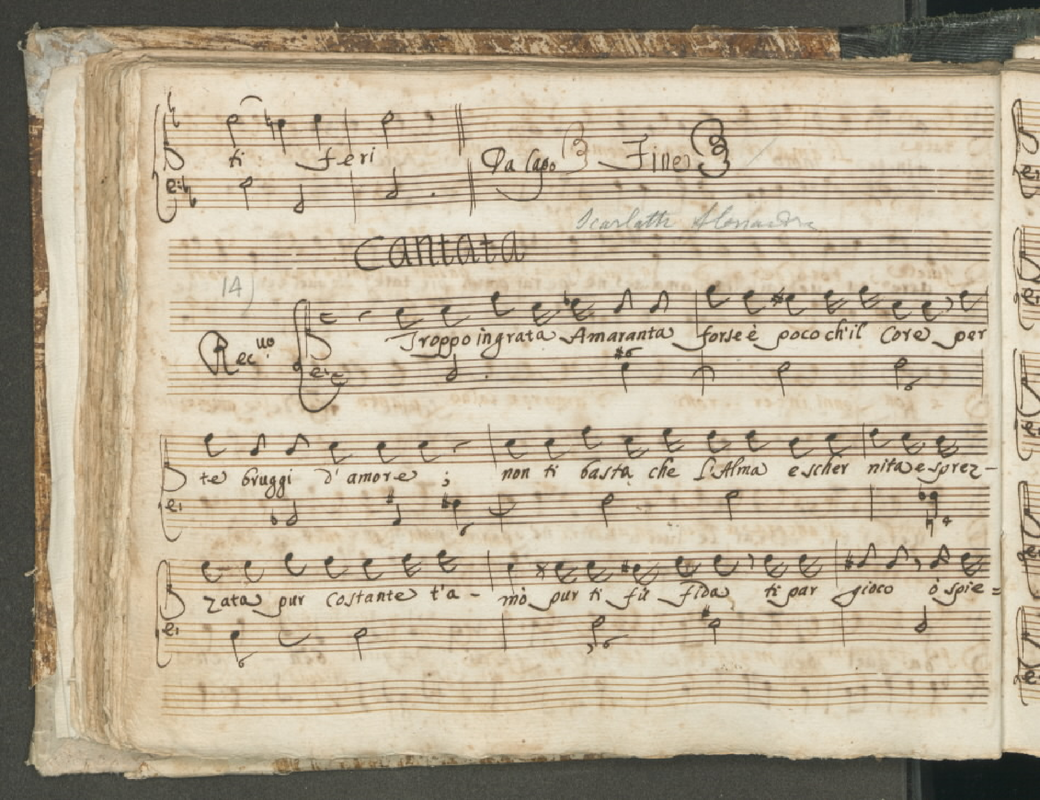 ti feri Da Capo Fine
Scarlatti Alessandro
Cantata
14)
Rec.uo Troppo ingrata Amaranta forse è poco ch'il Core per
te bruggi d'amore ; non ti basta che L'Alma e scher nita e sprez-
zata pur Costante t'a- mò pur ti fù fida ti par gioco ò spie=